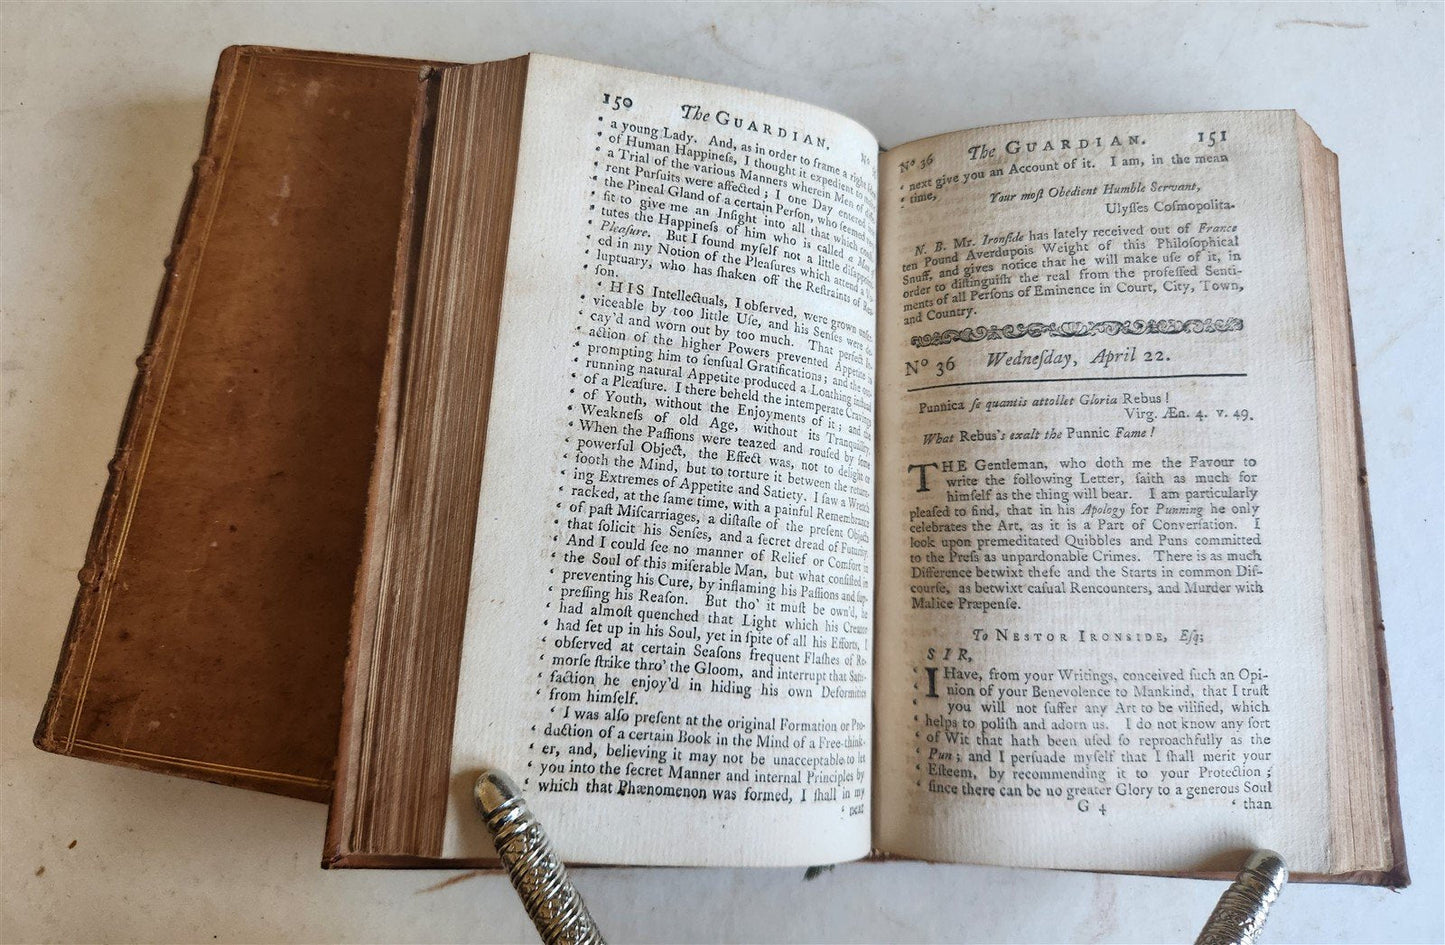 150 The GUARDIAN. No
‘ a young Lady. And, as in order to frame a right
‘ of Human Happineſs, I thought it expedient to
‘ a Trial of the various Manners wherein Men of
‘ rent Purſuits were affected; I one Day entered
‘ the Pineal Gland of a certain Perſon, who ſeemed
‘ fit to give me an Inſight into all that which
‘ tutes the Happineſs of him who is called a Man of
‘ Pleaſure. But I found myſelf not a little
‘ ed in my Notion of the Pleaſures which attend a
‘ luptuary, who has ſhaken off the Reſtraints of
‘ ſon.
‘ HIS Intellectuals, I obſerved, were grown
‘ viceable by too little Uſe, and his Senſes were
‘ cay'd and worn out by too much. That perfect
‘ action of the higher Powers prevented Appetite in
‘ prompting him to ſenſual Gratifications; and the
‘ running natural Appetite produced a Loathing
‘ of a Pleaſure. I there beheld the intemperate Cravings
‘ of Youth, without the Enjoyments of it; and the
‘ Weakneſs of old Age, without its Tranquility.
‘ When the Paſſions were teazed and rouſed by ſome
‘ powerful Object, the Effect was, not to delight or
‘ ſooth the Mind, but to torture it between the return-
‘ ing Extremes of Appetite and Satiety. I ſaw a Wretch
‘ racked, at the ſame time, with a painful Remembrance
‘ of paſt Miſcarriages, a diſtaſte of the preſent Objects
‘ that ſolicit his Senſes, and a ſecret dread of Futurity.
‘ And I could ſee no manner of Relief or Comfort in
‘ the Soul of this miſerable Man, but what conſiſted in
‘ preventing his Cure, by inflaming his Paſſions and ſup-
‘ preſſing his Reaſon. But tho' it muſt be own'd, he
‘ had almoſt quenched that Light which his Creator
‘ had ſet up in his Soul, yet in ſpite of all his Efforts, I
‘ obſerved at certain Seaſons frequent Flaſhes of Re-
‘ morſe ſtrike thro' the Gloom, and interrupt that Satis-
‘ faction he enjoy'd in hiding his own Deformities
‘ from himſelf.
‘ I was alſo preſent at the original Formation or Pro-
‘ duction of a certain Book in the Mind of a Free-think-
‘ er, and, believing it may not be unacceptable to let
‘ you into the ſecret Manner and internal Principles by
‘ which that Phænomenon was formed, I ſhall in my
‘ next
No 36 The GUARDIAN. 151
‘ next give you an Account of it. I am, in the mean
‘ time,
Your moſt Obedient Humble Servant,
Ulyſſes Coſmopolita.
N. B. Mr. Ironſide has lately received out of France
ten Pound Averdupois Weight of this Philoſophical
Snuff, and gives notice that he will make uſe of it, in
order to diſtinguiſh the real from the profeſſed Senti-
ments of all Perſons of Eminence in Court, City, Town,
and Country.
No 36 Wedneſday, April 22.
Punnica ſe quantis attollet Gloria Rebus!
Virg. Æn. 4. v. 49.
What Rebus's exalt the Punnic Fame!
THE Gentleman, who doth me the Favour to
write the following Letter, ſaith as much for
himſelf as the thing will bear. I am particularly
pleaſed to find, that in his Apology for Punning he only
celebrates the Art, as it is a Part of Converſation. I
look upon premeditated Quibbles and Puns committed
to the Preſs as unpardonable Crimes. There is as much
Difference betwixt theſe and the Starts in common Diſ-
courſe, as betwixt caſual Rencounters, and Murder with
Malice Præpenſe.
To NESTOR IRONSIDE, Eſq;
SIR,
‘ I Have, from your Writings, conceived ſuch an Opi-
‘ nion of your Benevolence to Mankind, that I truſt
‘ you will not ſuffer any Art to be vilified, which
‘ helps to poliſh and adorn us. I do not know any ſort
‘ of Wit that hath been uſed ſo reproachfully as the
‘ Pun; and I perſuade myſelf that I ſhall merit your
‘ Eſteem, by recommending it to your Protection;
‘ ſince there can be no greater Glory to a generous Soul
G 4 ‘ than